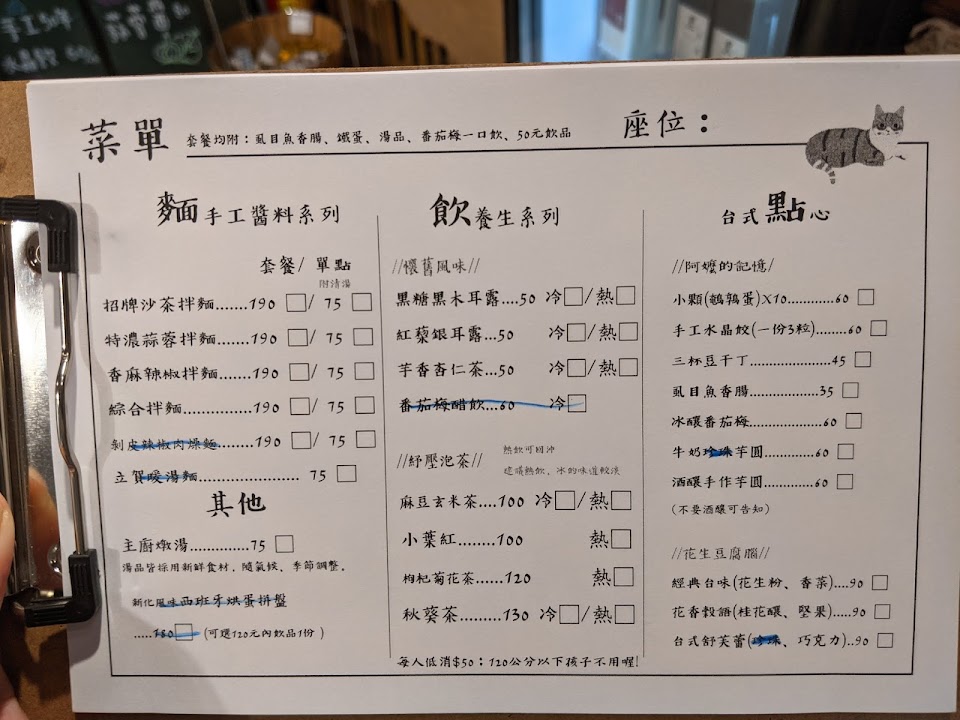 手工
菜單
套餐均附：虱目魚香腸、鐵蛋、湯品、番茄梅一口飲、50元飲品
座位：
麵手工醬料系列
套餐/單點
附清湯
招牌沙茶拌麵......190 / 75
特濃蒜蓉拌麵.......190 / 75
香麻辣椒拌麵.......190 / 75
綜合拌麵..............190 / 75
剝皮辣椒肉燥麵........190 / 75
立賀暖湯麵........................ 75
其他
主廚燉湯..............75
湯品皆採用新鮮食材，隨氣候、季節調整。
新化風味西班牙烘蛋拼盤
.....180 (可選120元內飲品1份)
飲養生系列
//懷舊風味//
黑糖黑木耳露....50 冷/熱
紅藜銀耳露...50 冷/熱
芋香杏仁茶...50 冷/熱
番茄梅醋飲...60 冷
//紓壓泡茶//
熱飲可回沖
建議熱飲，冰的味道較淡
麻豆玄米茶....100 冷/熱
小葉紅........100 熱
枸杞菊花茶......120 熱
秋葵茶.........130 冷/熱
每人低消$50：120公分以下孩子不用喔！
台式點心
//阿嬤的記憶/
小顆(鵪鶉蛋)X10............60
手工水晶餃(一份3粒)........60
三杯豆干丁....................45
虱目魚香腸..................35
冰釀番茄梅..................60
牛奶珍珠芋圓.............60
酒釀手作芋圓.............60
(不要酒釀可告知)
//花生豆腐腦//
經典台味(花生粉、香菜)....90
花香穀語(桂花釀、堅果)....90
台式舒芙蕾(珍珠、巧克力)..90